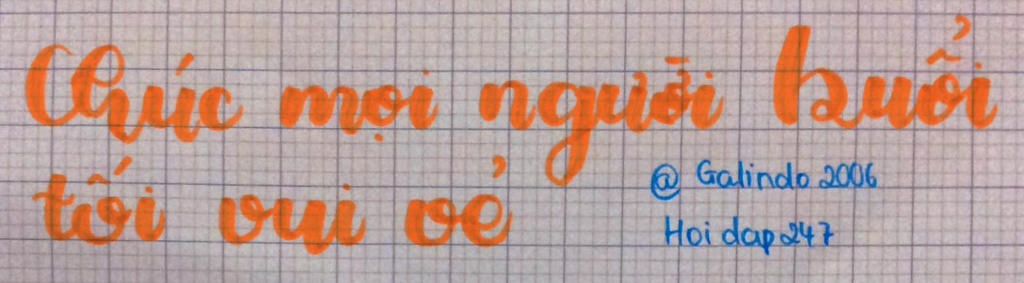 Chúc mọi người buổi
tối vui vẻ
@ Galindo 2006
Hoi dap 247